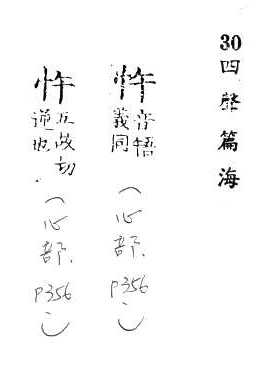 30 四聲篇海
忤 音義同
(心部. P356)
忤 五故切逆也.
(心部. P356)